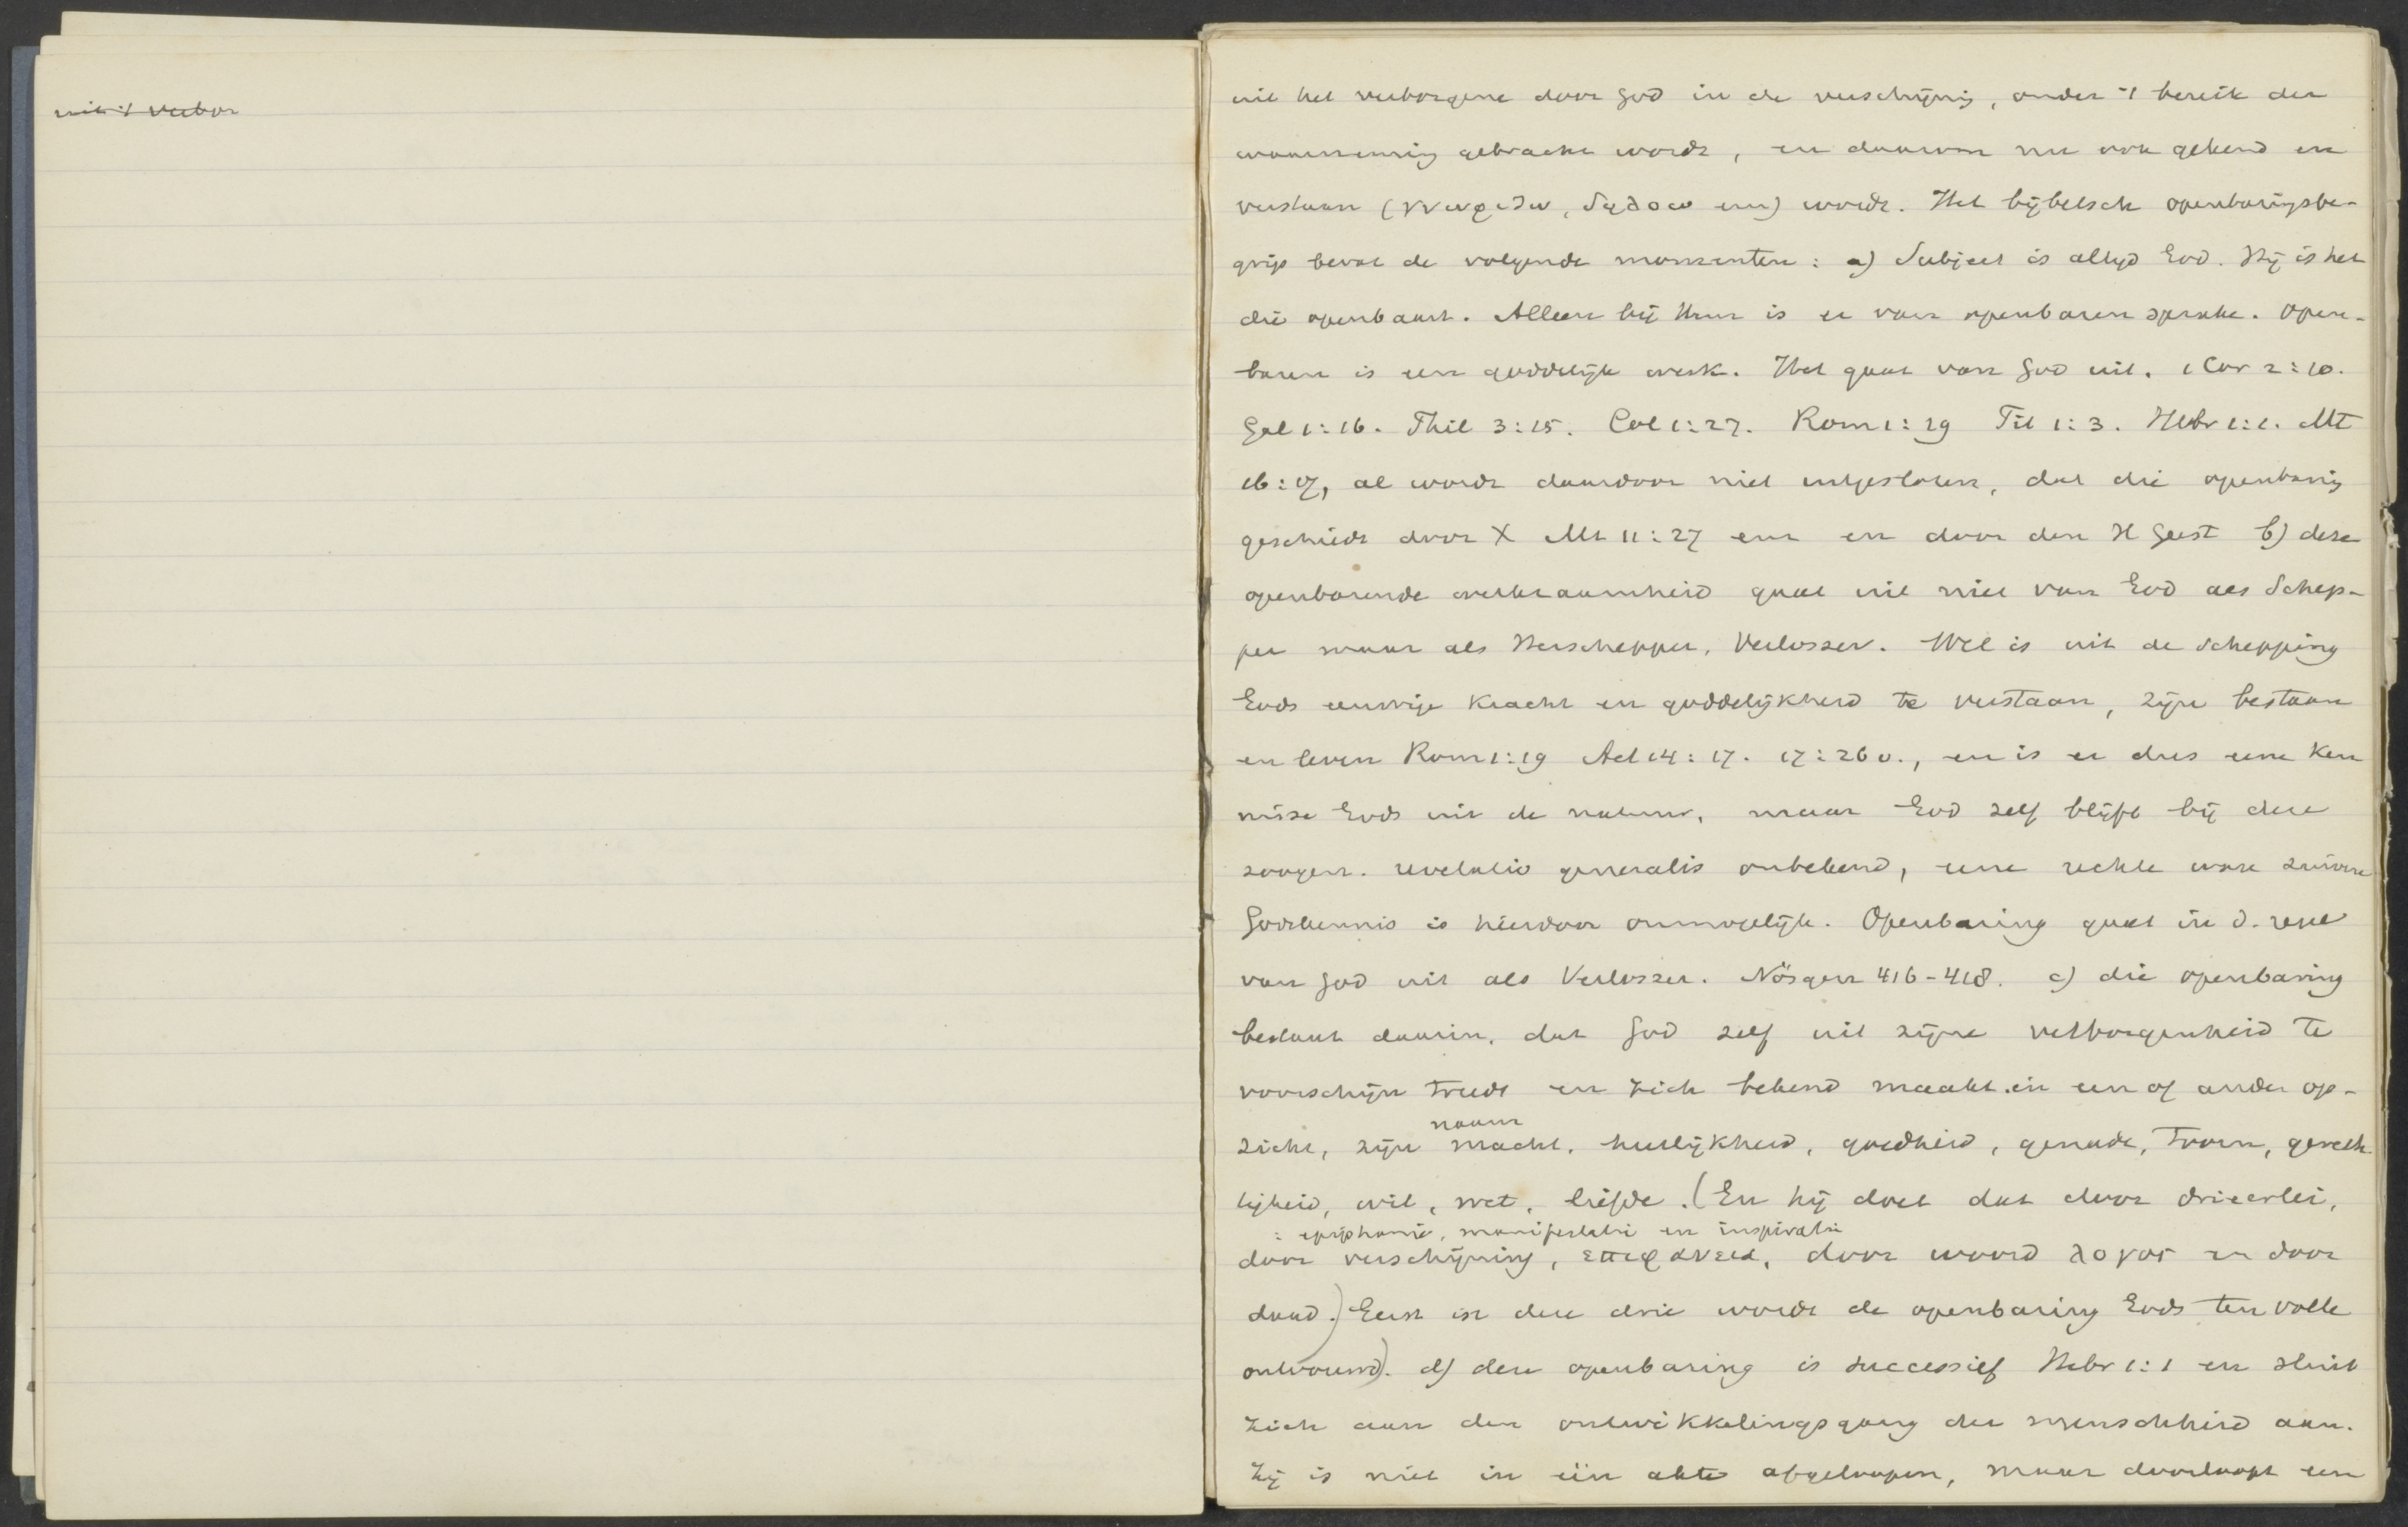 uit 't verbor
uit het verborgene door God in de verschijning, onder 't bereik der
waarneming gebracht wordt, en daarom nu ook gekend en
verstaan (γνωριζω, δηλοω enz) wordt. Het bijbelsch openbaringsbe-
grip bevat de volgende momenten: a) Subject is altijd God. Hij is het
die openbaart. Alleen bij Hem is er van openbaren sprake. Open-
baren is een goddelijk werk. Het gaat van God uit. 1 Cor 2:10.
Gal 1:16. Phil 3:15. Col 1:27. Rom 1:19 Tit 1:3. Hebr 1:1. Mt
16:17, al wordt daardoor niet uitgesloten, dat die openbaring
geschiedt door X Mt 11:27 enz en door den H Geest b) deze
openbarende werkzaamheid gaat uit niet van God als Schep-
per maar als Herschepper, Verlosser. Wel is uit de schepping
Gods eeuwige kracht en goddelijkheid te verstaan, zijn bestaan
en leven Rom 1:19 Act 14:17. 17:26 v., en is er dus eene ken
nisse Gods uit de natuur, maar God zelf blijft bij deze
zoogen. revelatio generalis onbekend, eene rechte ware zuivere
Godskennis is hierdoor onmogelijk. Openbaring gaat in d. regel
van God uit als Verlosser. Nösgen 416-418. c) die openbaring
bestaat daarin, dat God zelf uit zijne verborgenheid te
voorschijn treedt en zich bekend maakt in een of ander op-
naam
zicht, zijn macht, heerlijkheid, goedheid, genade, toorn, gerech
tigheid, wil, wet, liefde. (En hij doet dat door drieerlei,
: epiphanie, manifestatie en inspiratie
door verschijning, επιφανεια, door woord λογος en door
daad.) Eerst in deze drie wordt de openbaring Gods ten volle
ontvouwd). d) deze openbaring is successief Hebr 1:1 en sluit
zich aan den ontwikkelingsgang der menschheid aan.
Zij is niet in één akte afgeloopen, maar doorloopt een